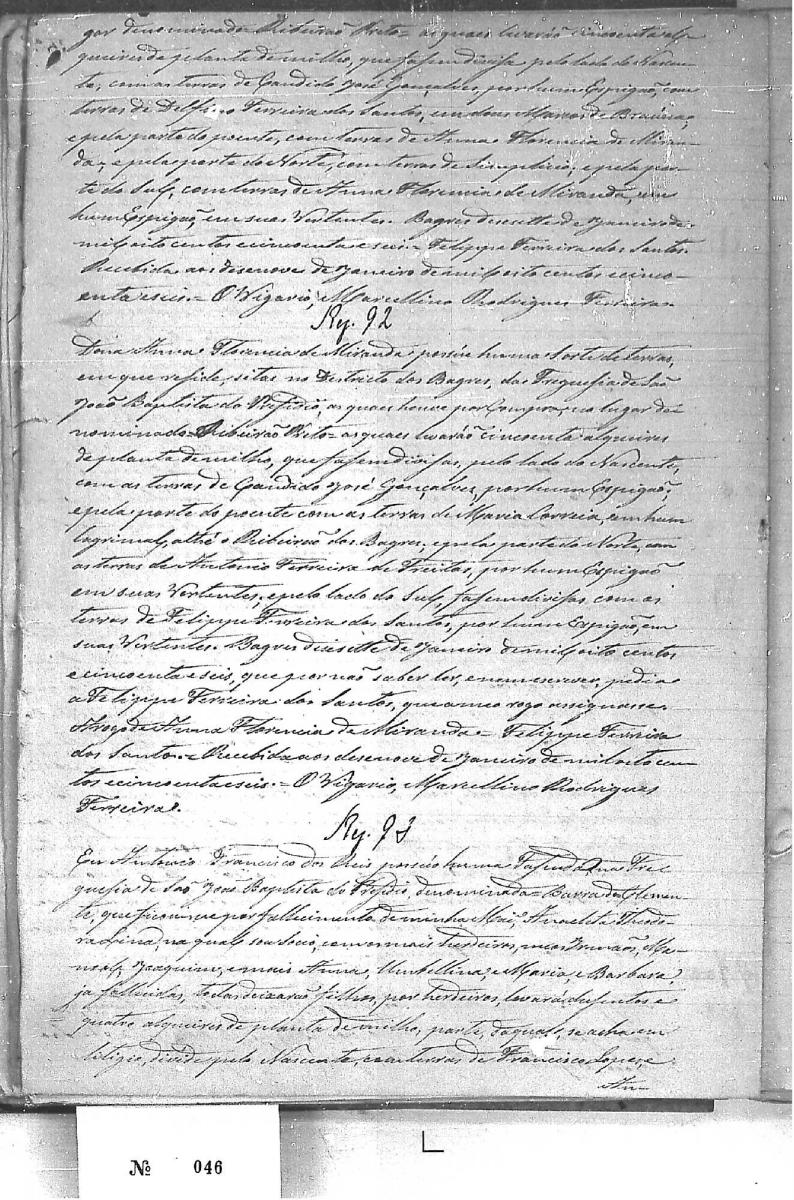 gar denominado Ribeirão Preto = as quaes levarão cincoenta alqueires de planta de milho, que fasem divisa pelo lado do Nascente, com as terras de Candido José Gonçalves, por hum Espigão, com
terras de Delfino Ferreira dos Santos, em dous Marcos de Braúnas,
e pela parte do poente, com terras de Anna Florencia de Miran-
da, e pela parte do Norte, com terras de Simplicio, e pela par-
te do Sul, com terras de Anna Florencia de Miranda, em
hum Espigão, em suas Vertentes. Bagres desesette de Janeiro de
mil oito centos e cincoenta e seis = Felippe Ferreira dos Santos.
Recebida aos desenove de Janeiro de mil oito centos e cinco-
enta e seis. = O Vigario, Marcellino Rodrigues Ferreira.
Rg. 92
Dona Anna Florencia de Miranda, possúe huma Sorte de terras,
em que reside, sitas no Destricto dos Bagres, da Freguesia de São
João Baptista do Presidio, as quaes houve por Compra, no lugar de-
nominado = Ribeirão Preto = as quaes levarão cincoenta alqueires
de planta de milho, que fasem divisas, pelo lado do Nascente,
com as terras de Candido José Gonçalves, por hum Espigão,
e pela parte do poente com as terras de Maria Correia, em hum
lagrimal, athé o Ribeirão dos Bagres, e pela parte do Norte, com
as terras de Antonio Ferreira de Freitas, por hum Espigão
em suas Vertentes, e pelo lado do Sul, fasem divisas, com as
terras de Felippe Ferreira dos Santos, por hum Espigão, em
suas Vertentes. Bagres desesette de Janeiro de mil oito centos
e cincoenta e seis, que por não saber ler, e nem escrever, pedi a
a Felippe Ferreira dos Santos, que a meo rogo assignasse.
A rogo de Anna Florencia de Miranda = Felippe Ferreira
dos Santos. = Recebida aos desenove de Janeiro de mil oito cen-
tos e cincoenta e seis. = O Vigario, Marcellino Rodrigues
Ferreira.
Rg. 93
Eu Antonio Francisco dos Reis possúo huma Fasenda, na Fre-
guesia de São João Baptista do Presidio, denominada = Barra dos Clemen-
te, que ficou-me por fallecimento de minha Mãi, Anacleta Theodo-
ra, na qual sou socio, com os mais herdeiros, meos Irmãos, Ma-
noel, Joaquim, e mais Anna, Umbellina e Maria, e Barbara,
já fallecidas, todas deixarão filhos, por herdeiros, levará dusentos e
quatro alqueires de planta de milho, parte, da qual, se acha em
letigio, divide pelo Nascente, com terras de Francisco Lopes, e
An-
Nº 046